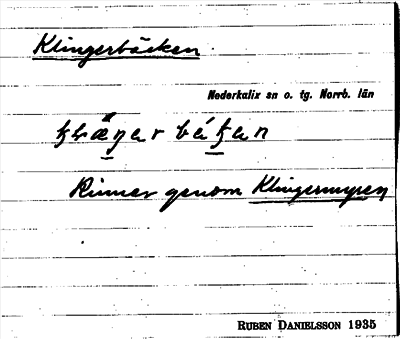 Klingerbäcken.
Nederkalix sn o. tg. Norrb. län
Rinner genom Klingermyren
RUBEN DANIELSSON 1935